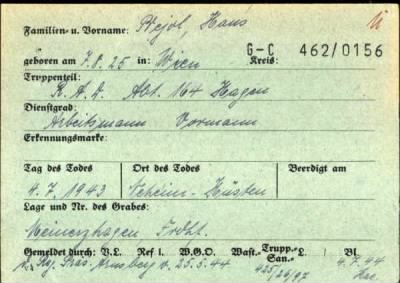 Familien- u. Vorname: Stejbl, Hans
geboren am 7.8.25 in: Wien Kreis: G-C 462/0156
Truppenteil:
R.A.D. Abt. 164 Hagen
Dienstgrad:
Arbeitsmann Vormann
Erkennungsmarke:
Tag des Todes Ort des Todes Beerdigt am
4.7.1943 Neheim-Hüsten
Lage und Nr. des Grabes:
Meinerzhagen Frdhf.
Gemeldet durch: V.L. Ref I. W.G.O. Wast.- Trupp.- San.- L. Bl.
v. Reg. Präs. Arnsberg v. 25.5.44 4.7.44